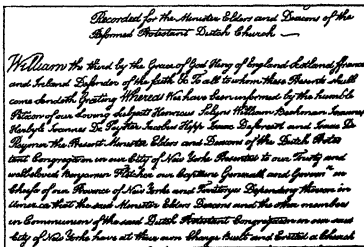 Recorded for the Minister Elders and Deacons of the
Reformed Protestant Dutch Church —
William the third by the Grace of God King of England Scotland, france
and Ireland Defender of the faith &c To all to whom these Presents shall
come sendeth Greeting Whereas We have been informed by the humble
Peticon of our Loving Subjects Henricus Selyns William Beekman Joannes
Kerbyle Joannes De Peyster Jacobus Kipp Isaac Deforeest and Isaac De
Reymer the Present Minister Elders and Deacons of the Dutch Protes
tant Congregation in our City of New Yorke Presented to our Trusty and
welbeloved Benjamin Fletcher our Capitaine Generall and Govern^r in
Cheife of our Province of New Yorke and Territoryes Depending thereon in
America that the said Minister Elders Deacons and the other members
in Communion of the said Dutch Protestant Congregation in our said
City of New Yorke have at their own Charge Built and Erected a Church